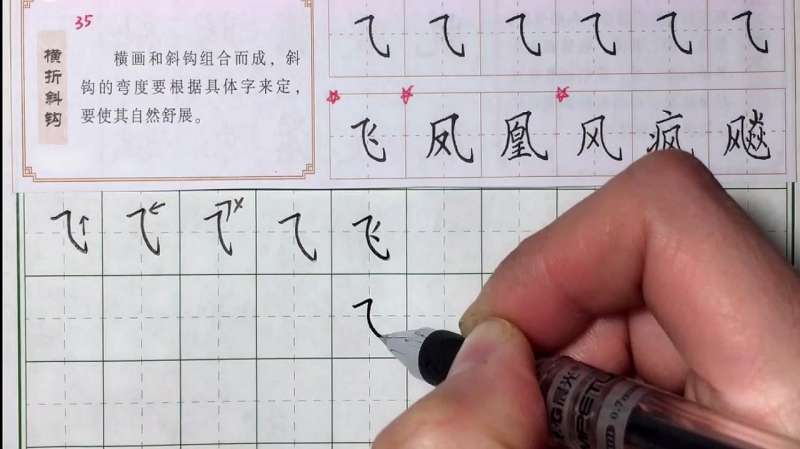 35
横折斜钩
横画和斜钩组合而成，斜
钩的弯度要根据具体字来定，
要使其自然舒展。
⺄ ⺄ ⺄ ⺄ ⺄ ⺄
飞 凤 凰 风 疯 飚
⺄↑ ⺄← ⺄× ⺄ 飞
⺄
0.7mm